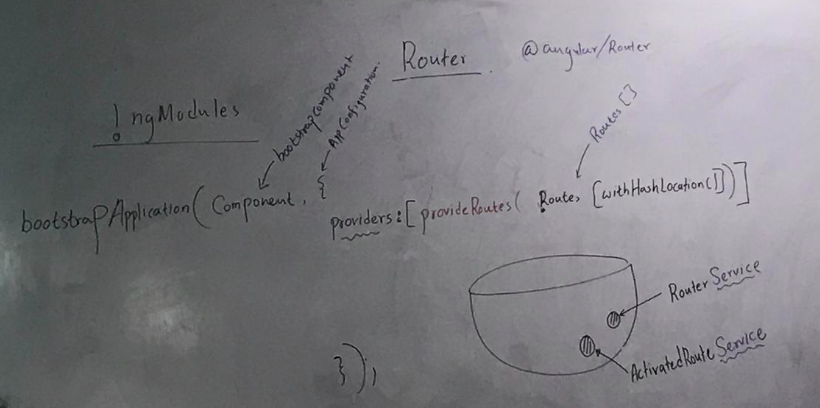 Router
@angular/Router
! ngModules
bootstrapComponent
AppConfiguration.
Routes[]
bootstrapApplication( Component, {
providers:[provideRoutes( Routes [withHashLocation()])]
Router Service
ActivatedRoute Service
});